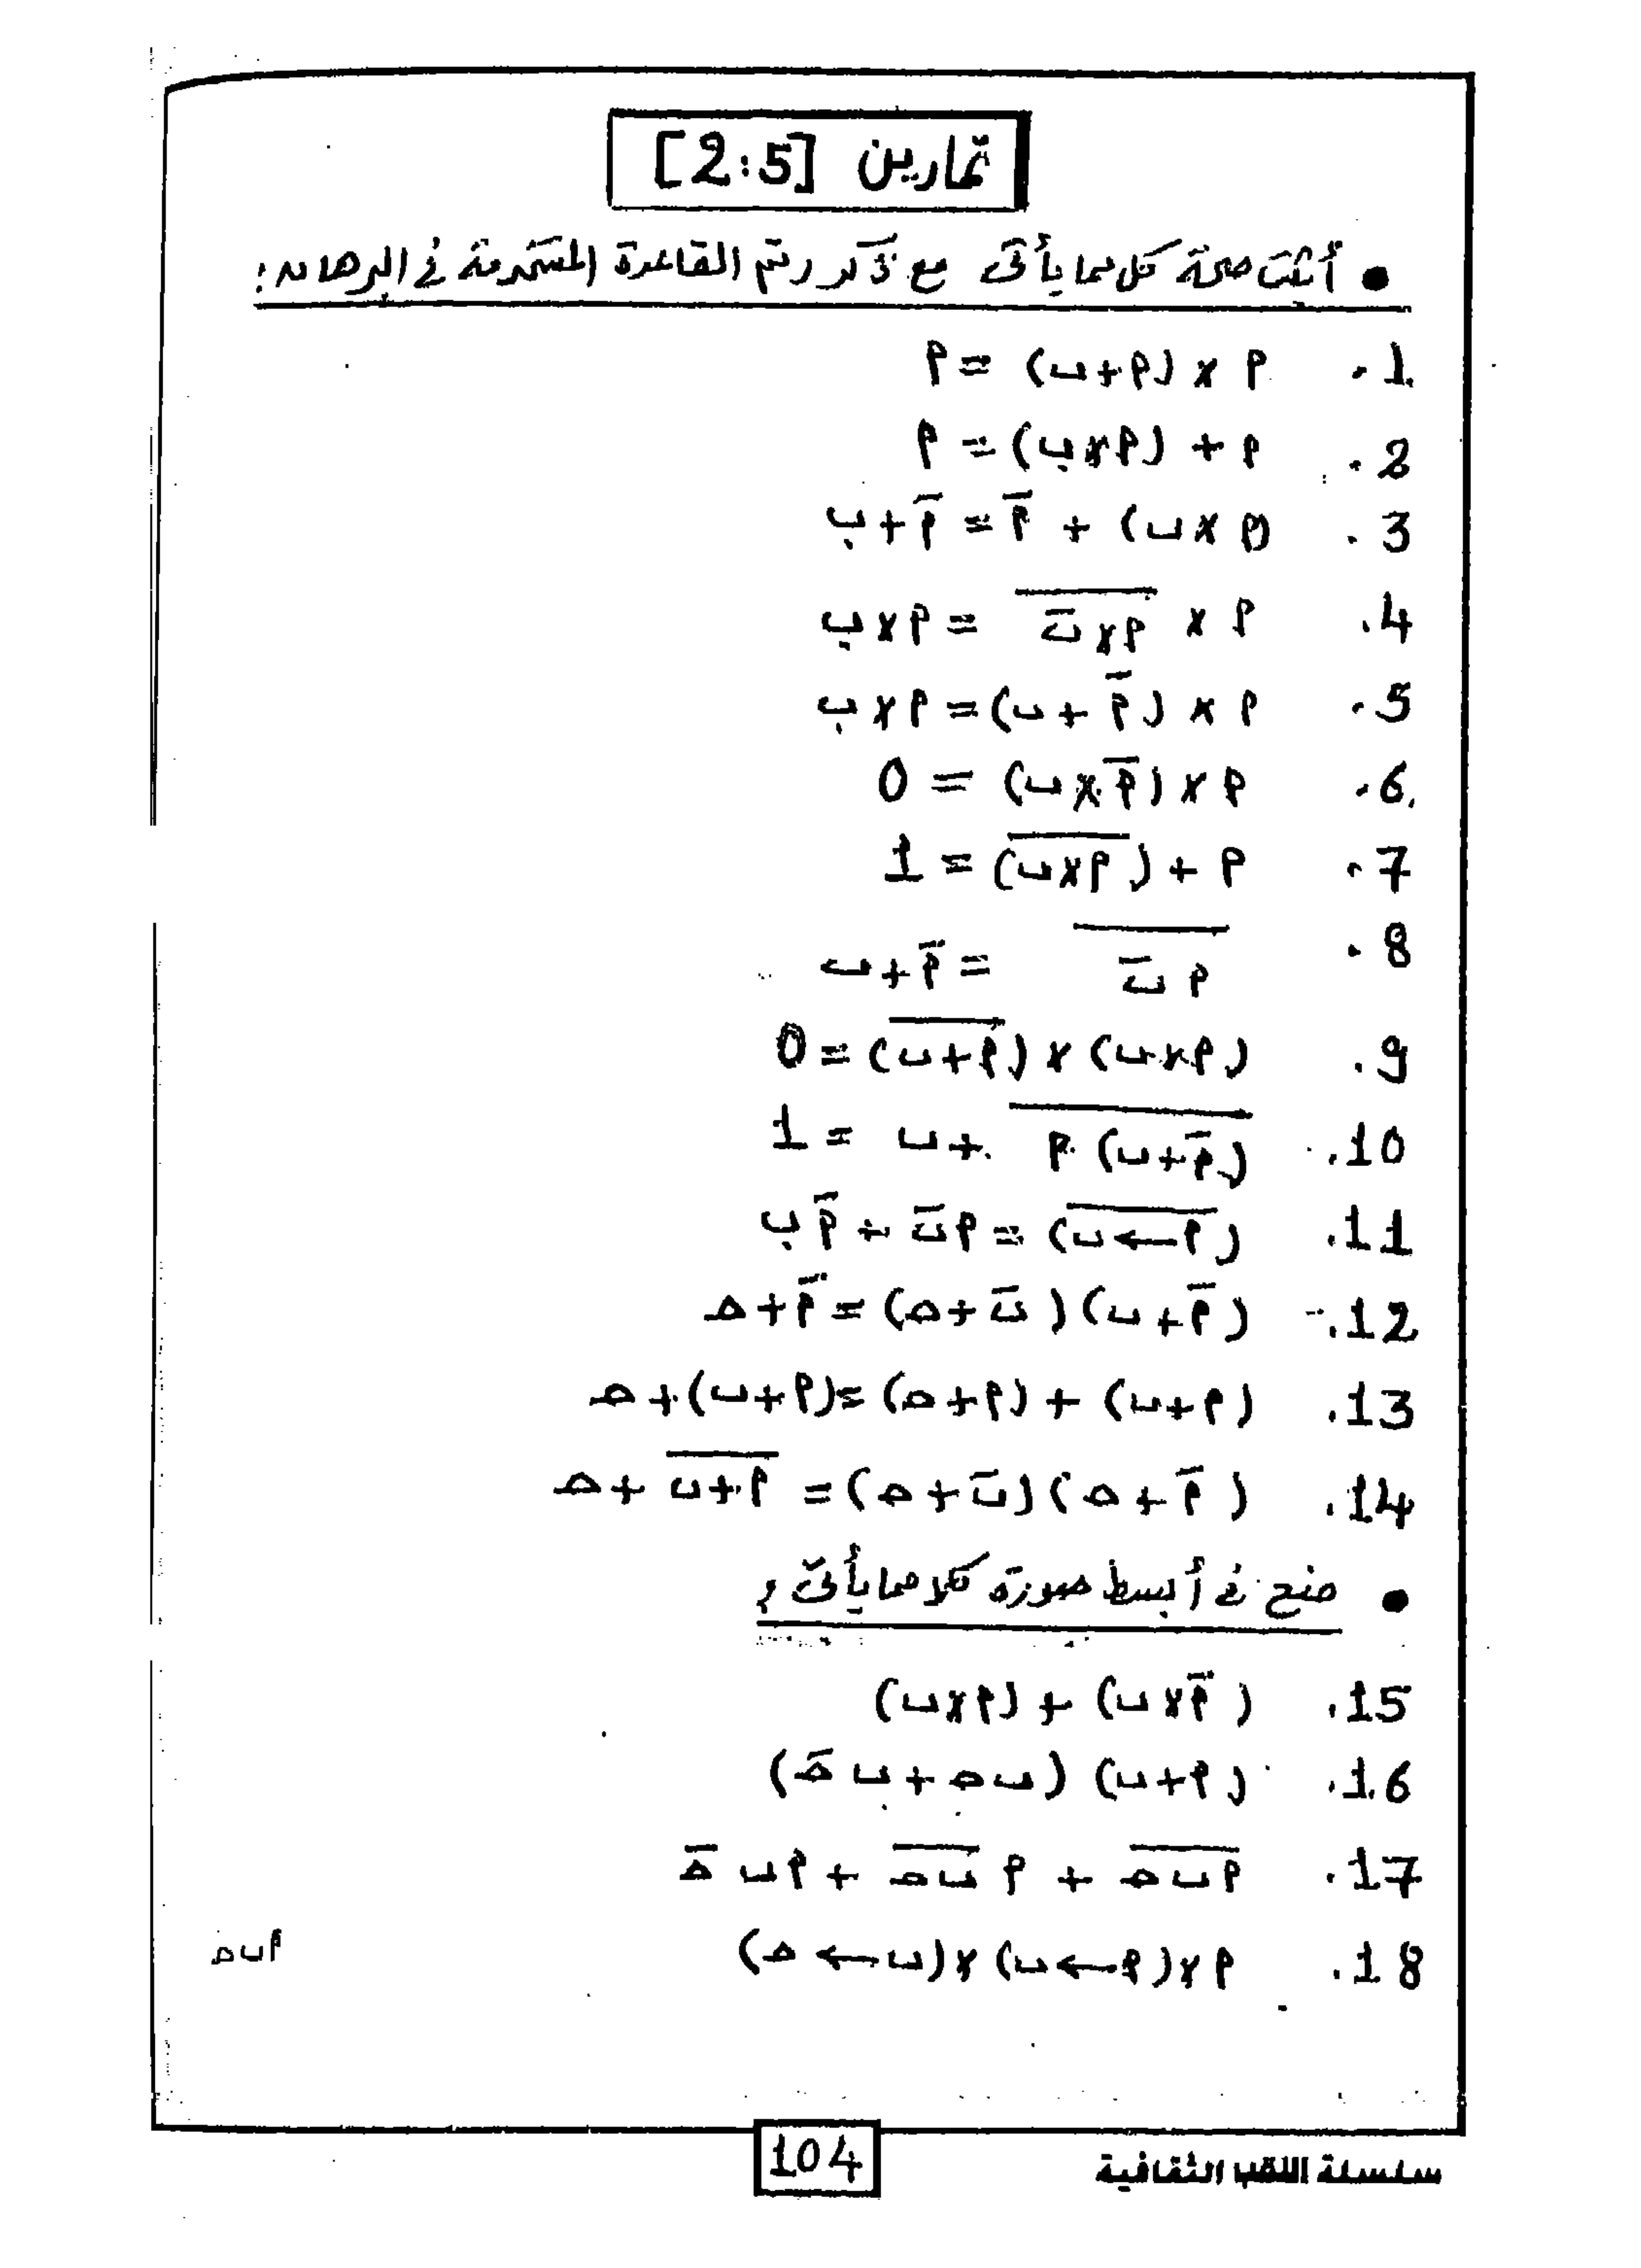 تمارين [2:5]
● أثبت صحة كل مما يأتى مع ذكر رقم القاعدة المستخدمة في البرهان:
1. أ × (أ+ب) = أ
2. أ + (أ×ب) = أ
3. (أ × ب) + أ̅ = أ̅ + ب
4. أ × \overline{أ×ب̅} = أ×ب
5. أ × (أ̅ + ب) = أ×ب
6. أ × (أ̅ × ب) = 0
7. أ + \overline{(أ×ب)} = 1
8. \overline{أ ب̅} = أ̅+ب
9. (أ×ب) × \overline{(أ+ب)} = 0
10. \overline{(أ̅+ب) أ} + ب = 1
11. \overline{(أ←ب)} = أب̅ + أ̅ب
12. (أ̅ + ب)(ب̅ + ه) = أ̅+ه
13. (أ+ب) + (أ+ه) = (أ+ب)+ه
14. (أ̅ + ه)(ب̅+ه) = \overline{أ+ب} + ه
● ضع في أبسط صورة كلا مما يأتى:
15. (أ̅×ب) + (أ×ب)
16. (أ+ب) (ب ه + ب ه̅)
17. \overline{أ ب ه} + أ \overline{ب ه} + أ ب ه̅
18. أ×(أ←ب)×(ب←ه) أ ب ه
104
سلسلة اللقب الثقافية